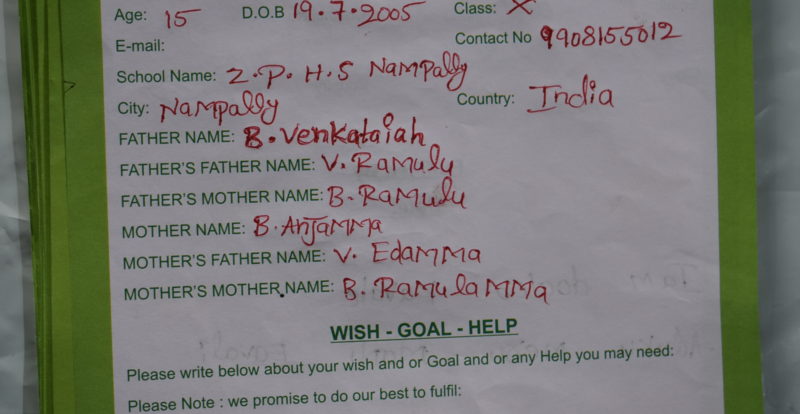 Age: 15 D.O.B 19.7.2005 Class: X
E-mail: Contact No 9908155012
School Name: Z.P.H.S Nampally
City: Nampally Country: India
FATHER NAME: B. Venkataiah
FATHER'S FATHER NAME: V. Ramulu
FATHER'S MOTHER NAME: B. Ramulu
MOTHER NAME: B. Anjamma
MOTHER'S FATHER NAME: V. Edamma
MOTHER'S MOTHER NAME: B. Ramulamma
WISH - GOAL - HELP
Please write below about your wish and or Goal and or any Help you may need:
Please Note : we promise to do our best to fulfil: